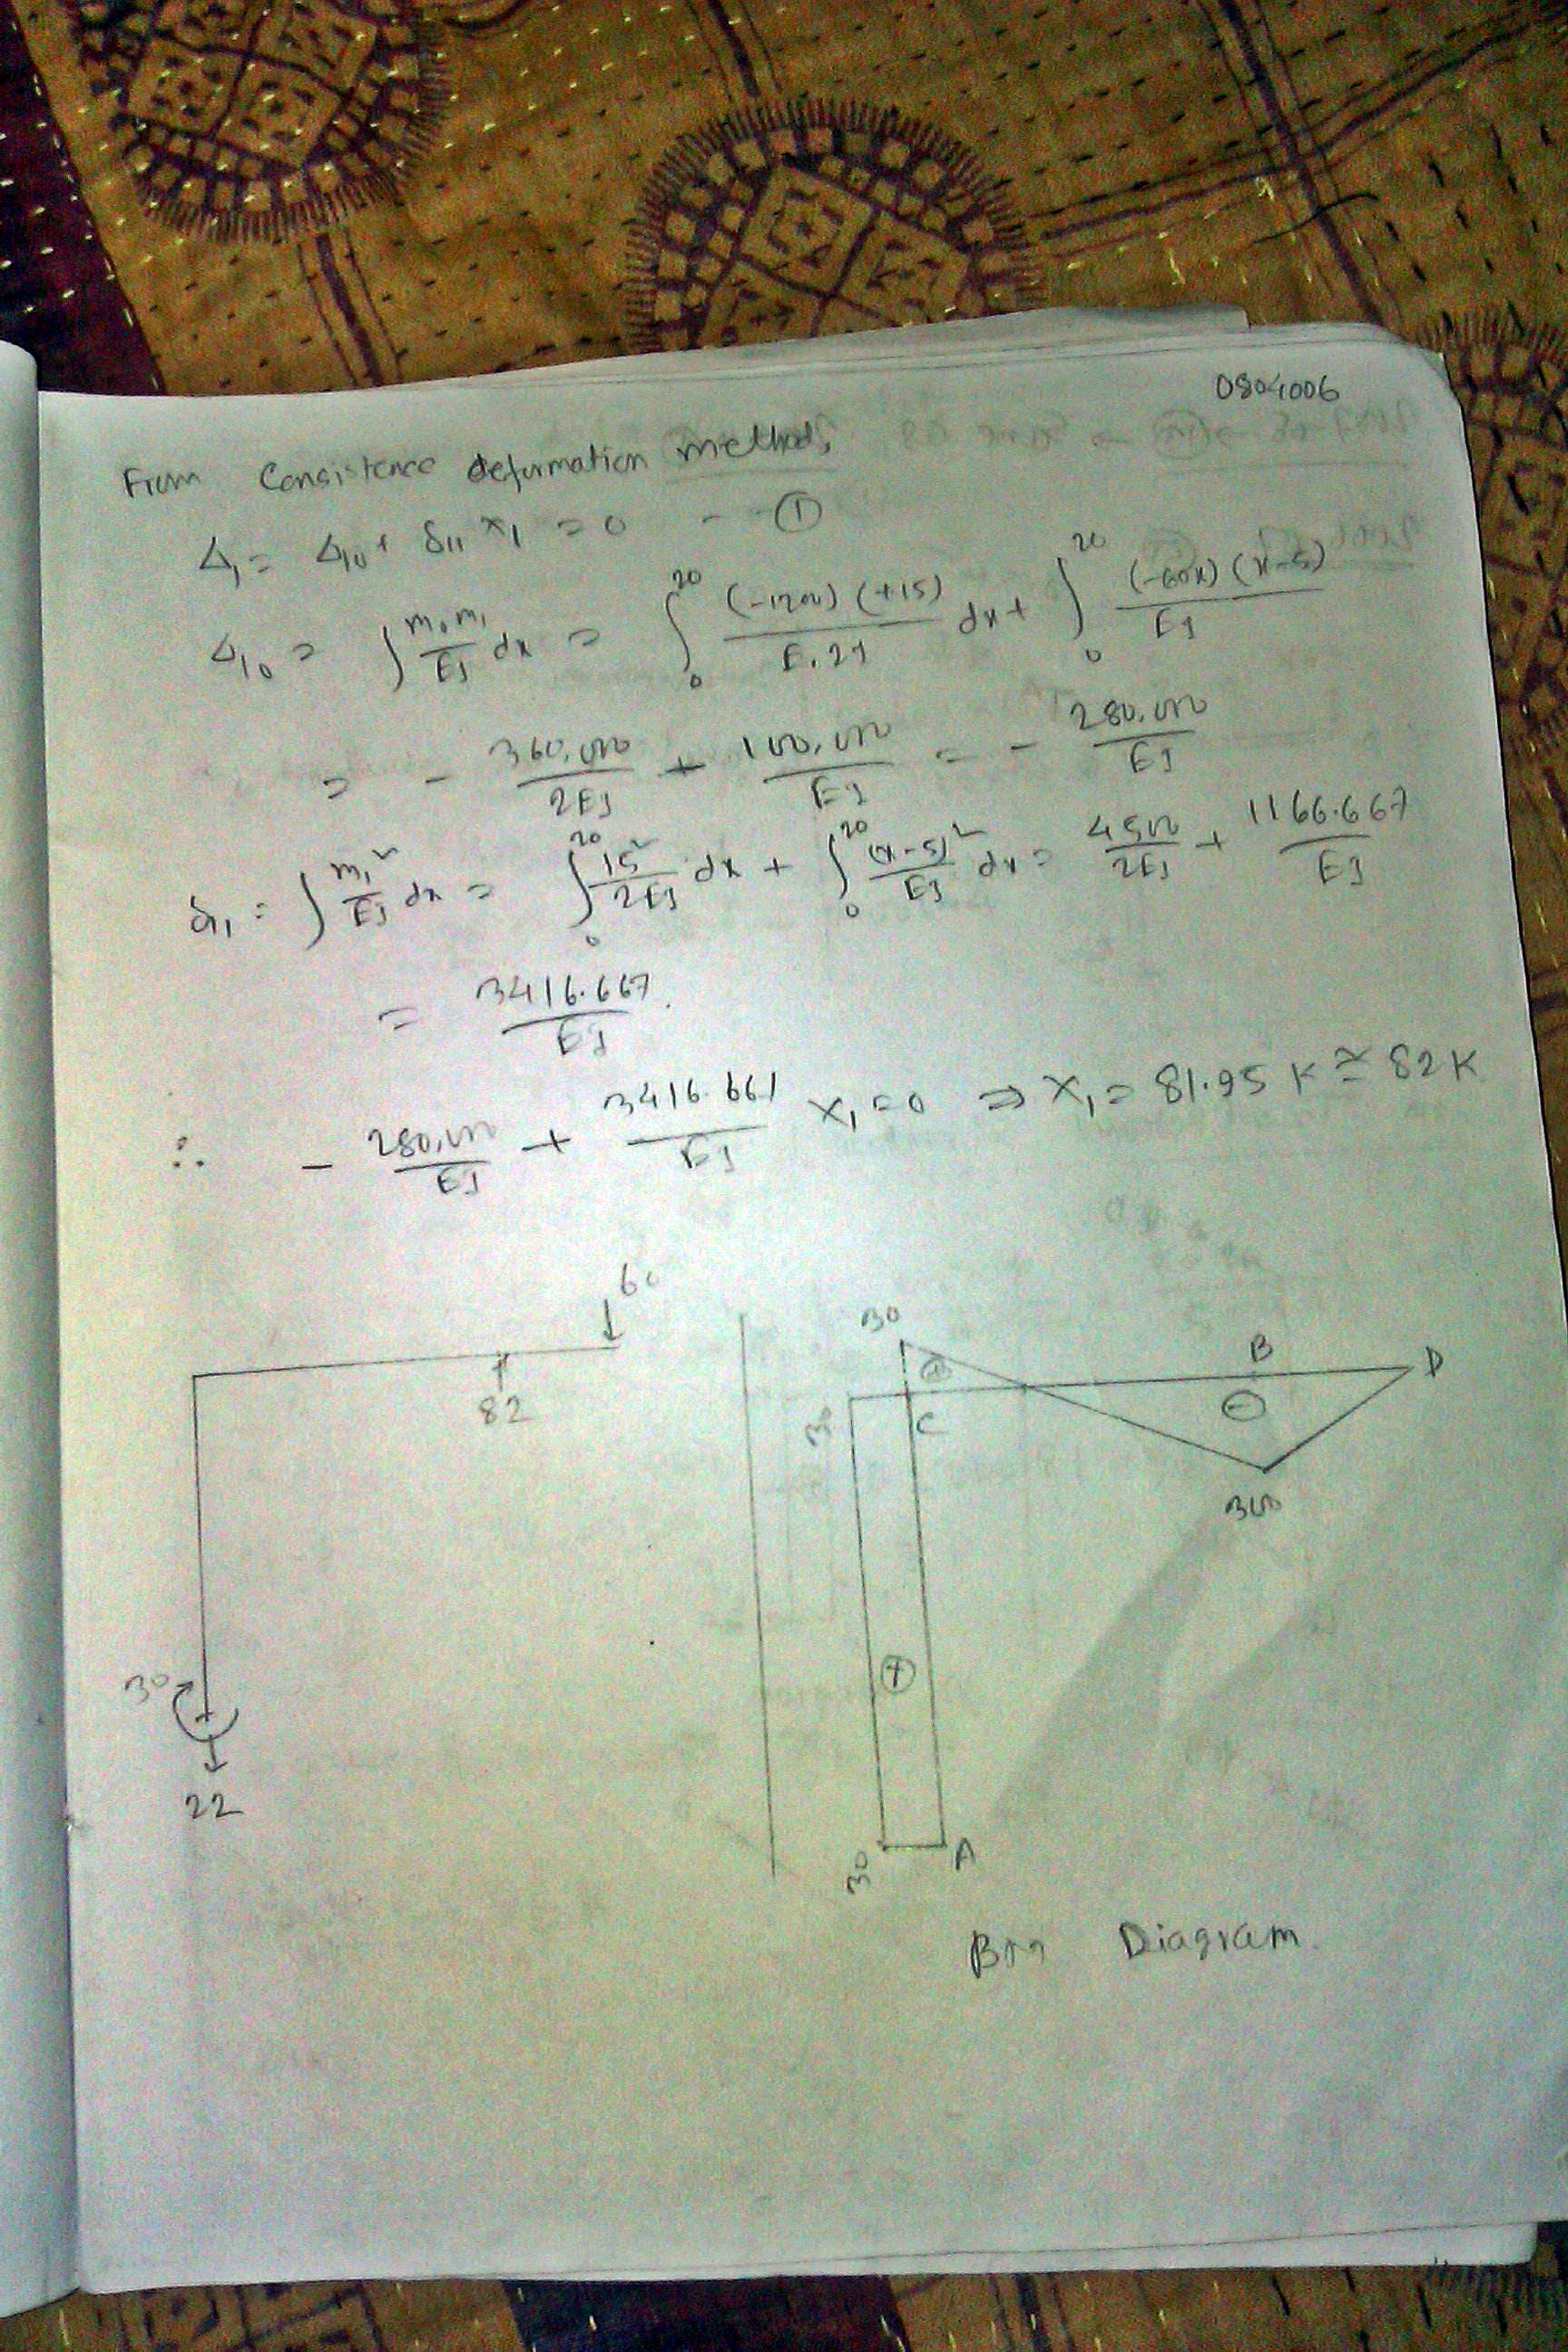 0804006
From Consistence deformation method,
Δ₁ = Δ₁₀ + δ₁₁ x₁ = 0 - - ①
Δ₁₀ = ∫ m₀m₁/EI dx = ∫₀²⁰ (-1200)(+15)/E.2I dx + ∫₀²⁰ (-60x)(x-5)/EI
= - 360,000/2EI + 100,000/EI = - 280,000/EI
δ₁₁ = ∫ m₁²/EI dx = ∫₀²⁰ 15²/2EI dx + ∫₀²⁰ (x-5)²/EI dx = 4500/2EI + 1166.667/EI
= 3416.667/EI
∴ - 280,000/EI + 3416.667/EI x₁ = 0 ⇒ x₁ = 81.95 K ≃ 82 K
60
82
30
22
30
B
D
30
C
(-)
300
(+)
30
A
BM Diagram.